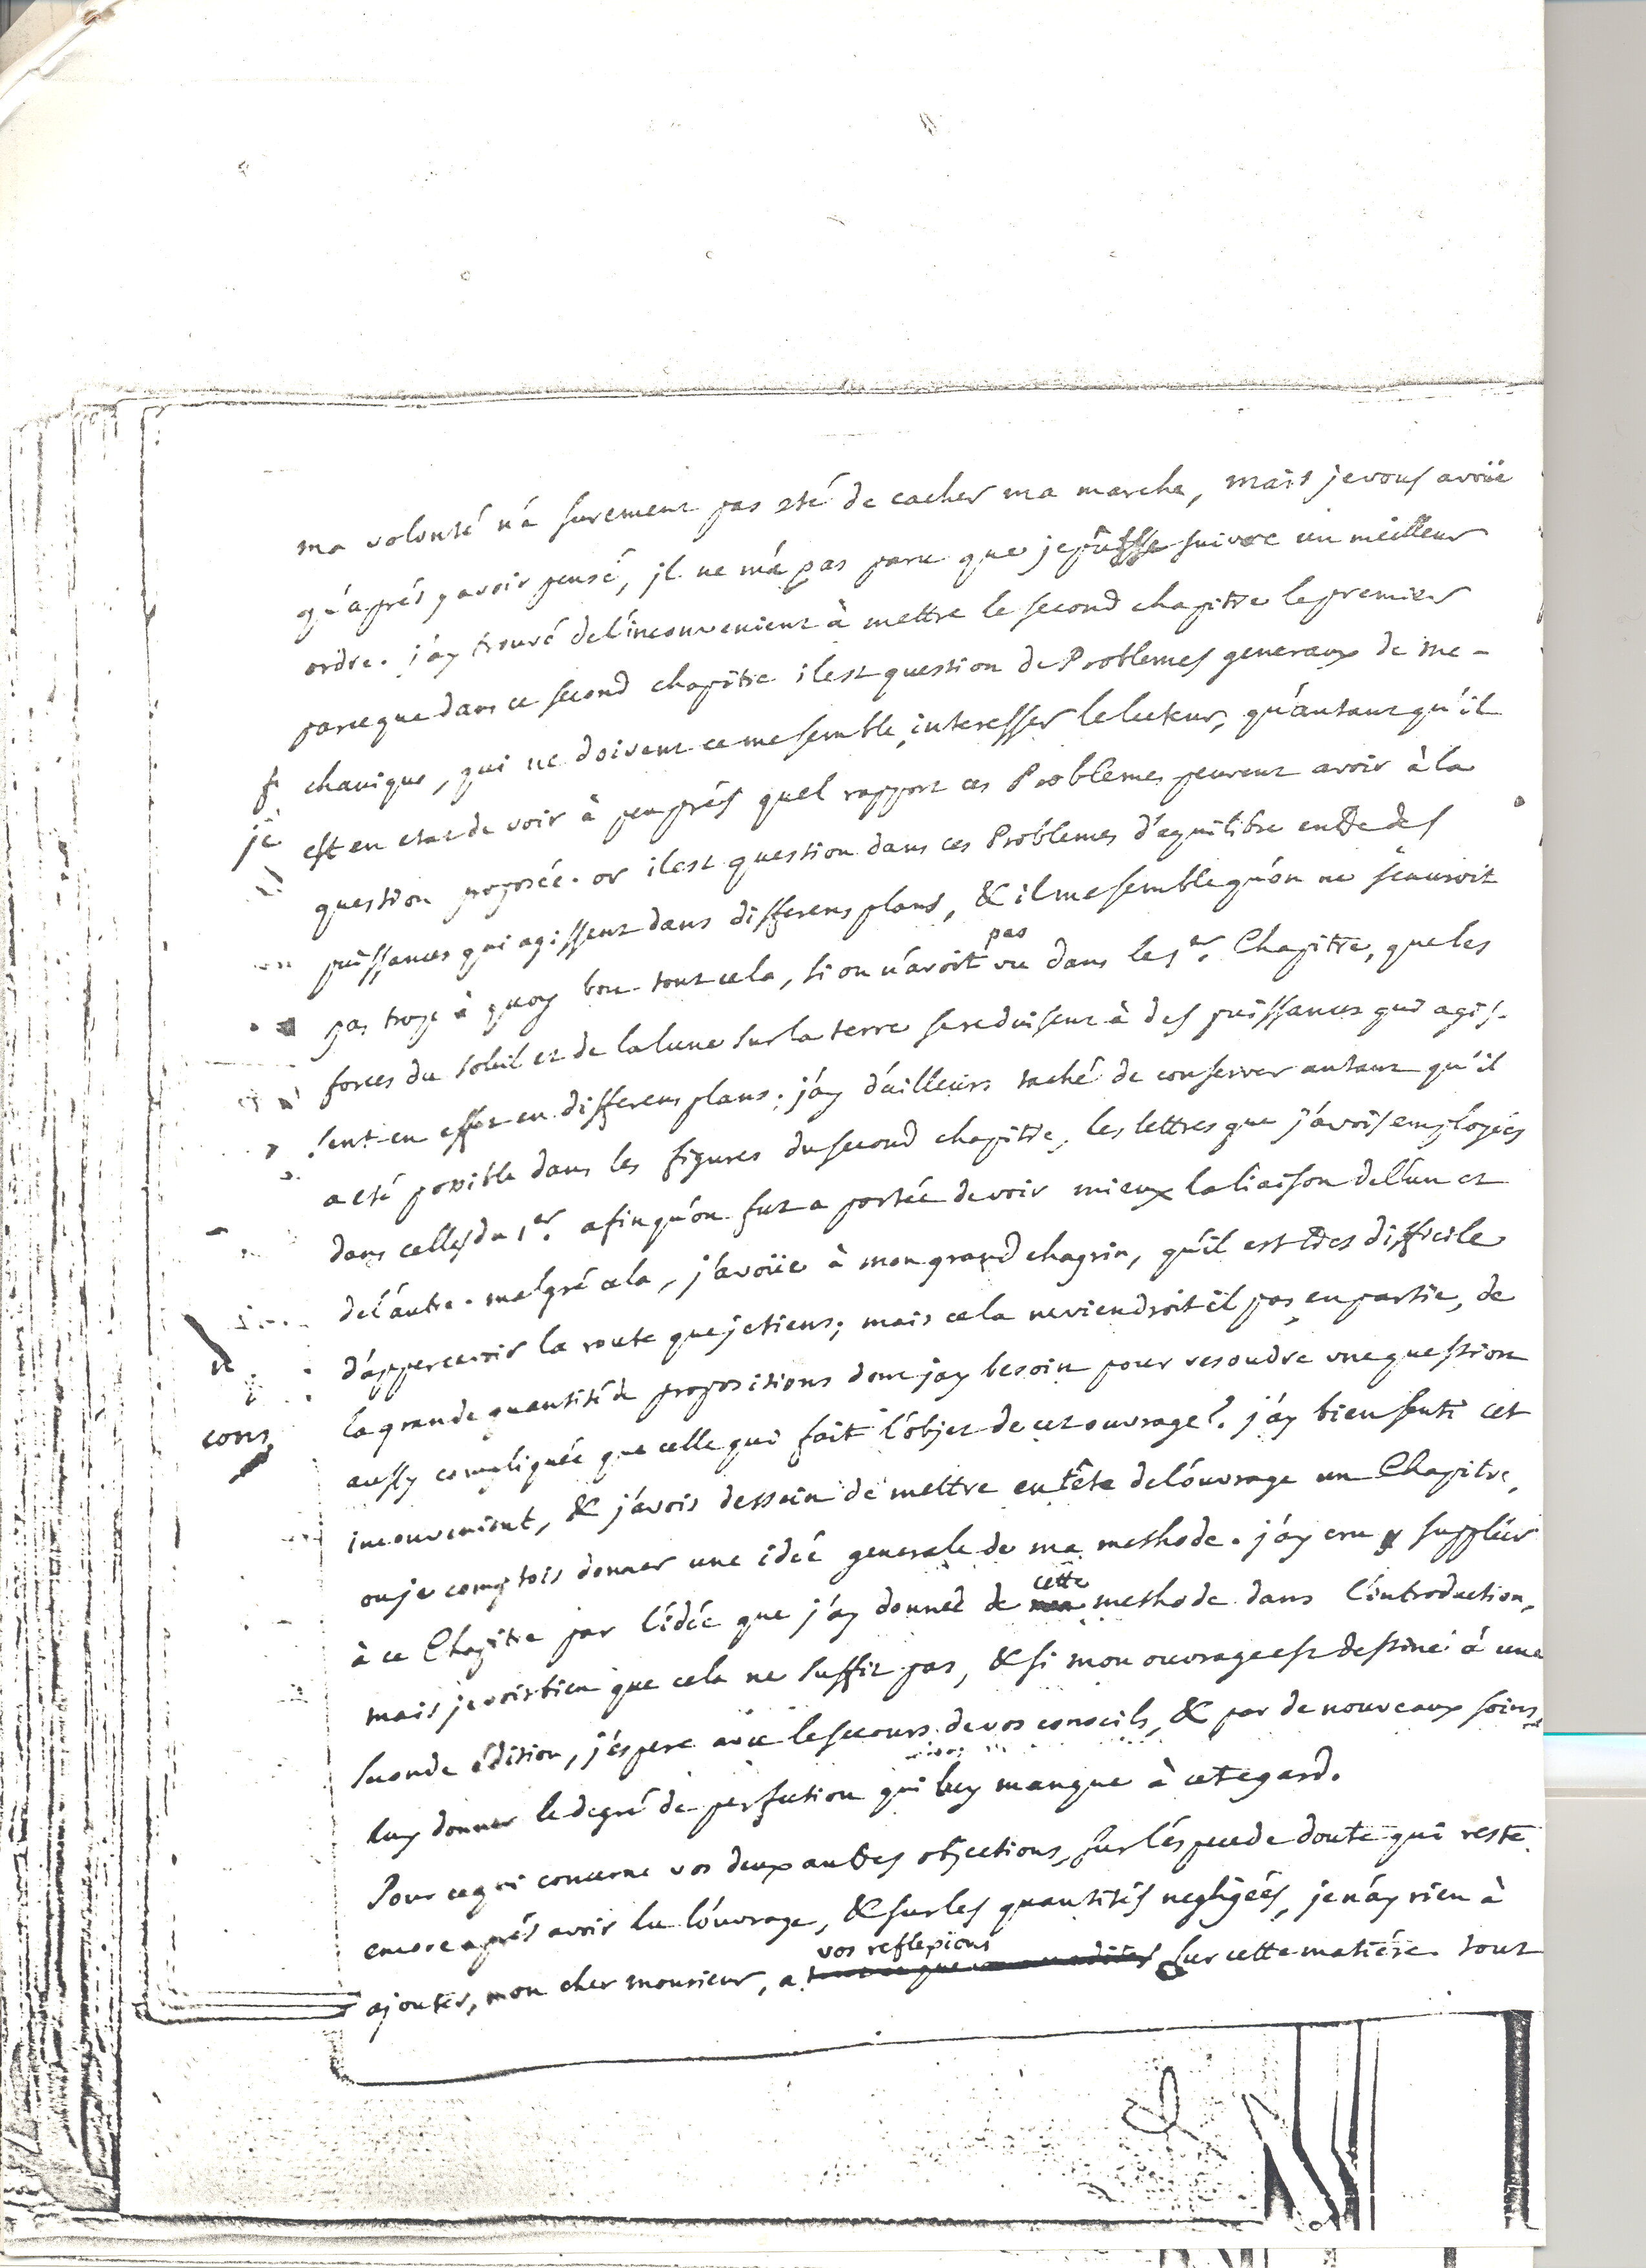 ma volonté n'a surement pas eté de cacher ma marche, mais je vous avoüe
qu'aprés y avoir pensé, il ne m'a pas paru que je pûsse suivre un meilleur
ordre. j'ay trouvé de l'inconvenient à mettre le second chapitre le premier
parceque dans ce second chapitre il est question de Problemes generaux de me-
chanique, qui ne doivent ce me semble interesser le lecteur, qu'autant qu'il
est en etat de voir à peuprés quel rapport ces Problemes peuvent avoir à la
question proposée. or il est question dans ces Problemes d'equilibre entre des
puissances qui agissent dans differens plans, & il me semble qu'on ne sçauroit
pas trop à quoy bon tout cela, si on n'avoit pas vu dans le 1er. Chapitre, que les
forces du soleil et de la lune sur la terre se reduisent à des puissances qui agis-
sent en effet en differens plans. j'ay d'ailleurs taché de conserver autant qu'il
a eté possible dans les figures du second chapitre, les lettres que j'avois employées
dans celles du 1er. afin qu'on fut a portée de voir mieux la liaison de l'un et
de l'autre. malgré cela, j'avoüe à mon grand chagrin, qu'il est tres difficile
d'appercevoir la route que je tiens; mais cela ne viendroit il pas en partie, de
la grande quantité de propositions dont j'ay besoin pour resoudre une question
aussy compliquée que celle qui fait l'objet de cet ouvrage?. j'ay bien senti cet
inconvenient, & j'avois dessein de mettre en tête de l'ouvrage un Chapitre,
ou je comptois donner une idée generale de ma methode. j'ay cru y suppléer
à ce Chapitre par l'idée que j'ay donneé de cette methode dans l'introduction,
mais je vois bien que cela ne suffit pas, & si mon ouvrage est destiné à une
seconde édition, j'espere avec le secours de vos conseils, & par de nouveaux soins,
luy donner le degré de perfection qui luy manque à cet egard.
Pour ce qui concerne vos deux autres objections, sur l'espece de doute qui reste
encore aprés avoir lu l'ouvrage, & sur les quantités negligées, je n'ay rien à
ajouter, mon cher monsieur, a vos reflexions sur cette matiére. tout
f
je
n
cons